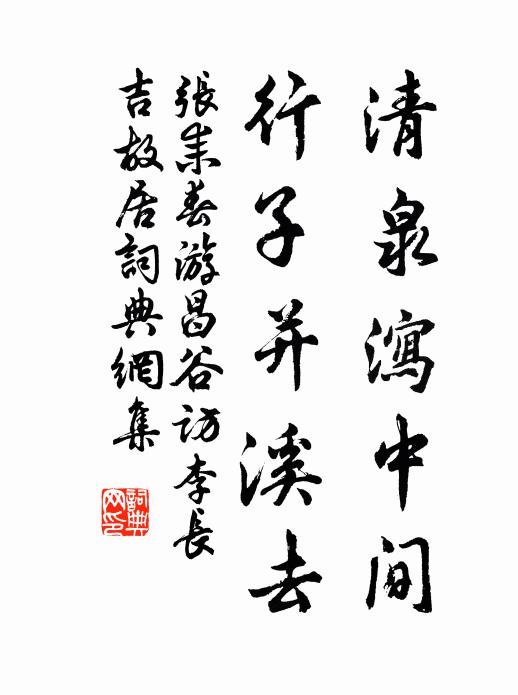 清泉瀉中間
行子并溪去
張耒春游昌谷訪李長
吉故居詞典網集
詞典
网印